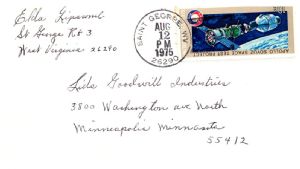 Elda Lipscomb
St George Rt 3
West Virginia 26290
SAINT GEORGE, WV
AUG
12
PM
1975
26290
APOLLO SOYUZ SPACE TEST PROJECT
Lids Goodwill Industries
3800 Washington ave North
Minneapolis Minnasota
55412